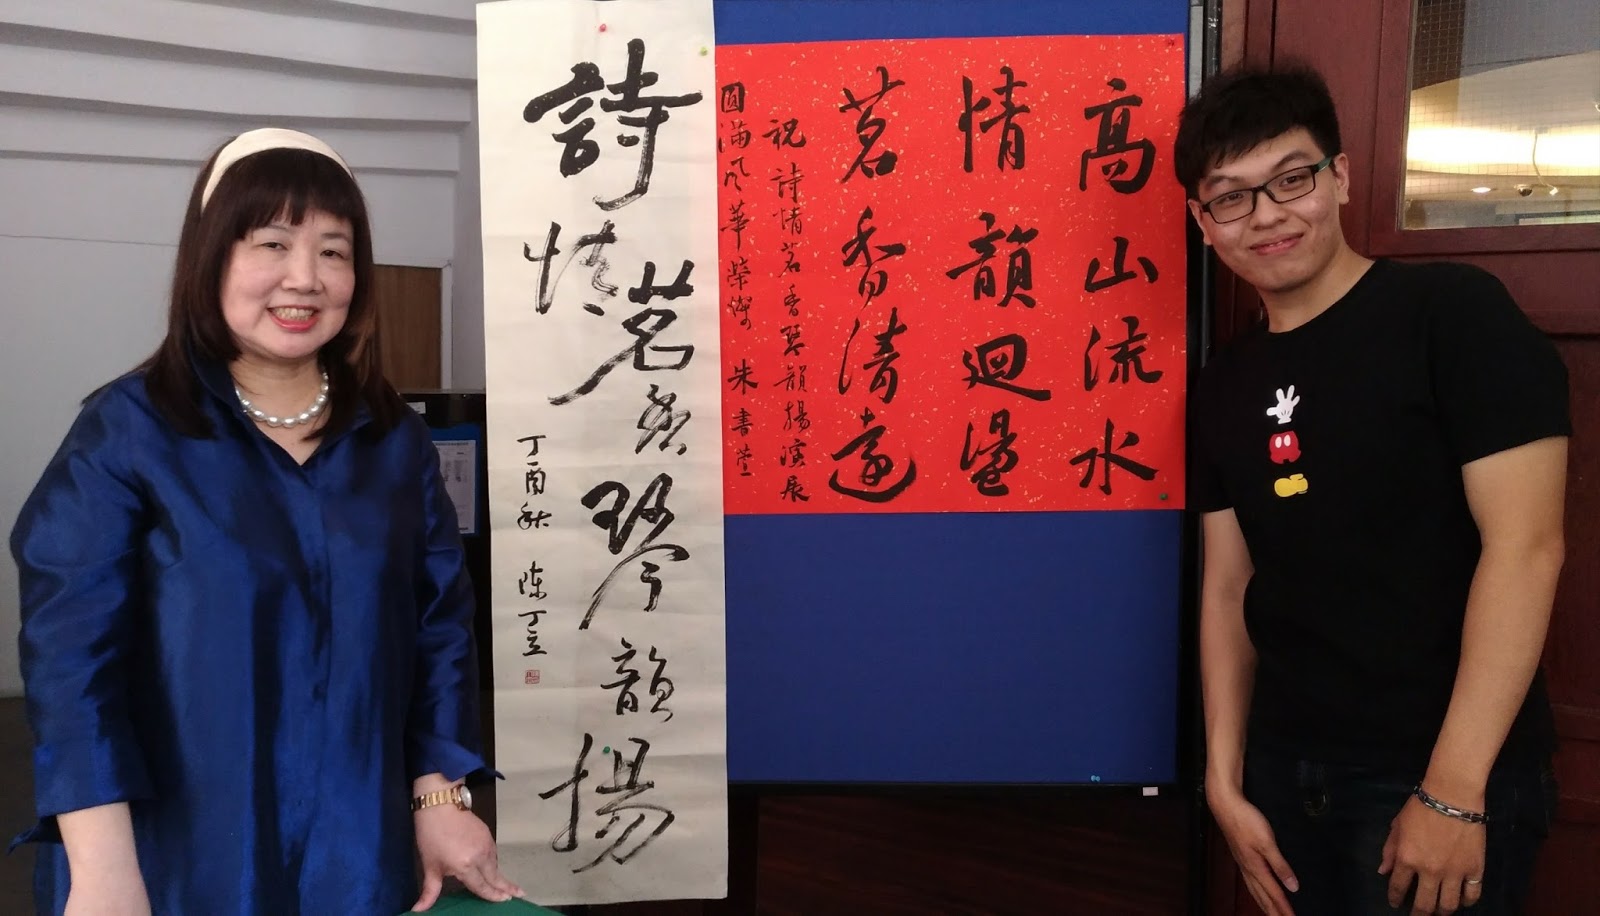 高山流水
情韻迴盪
茗香清遠
祝詩情茗香琴韻揚演展
圓滿風華榮燦 朱書萱
詩情茗香琴韻揚
丁酉秋 陈丁立